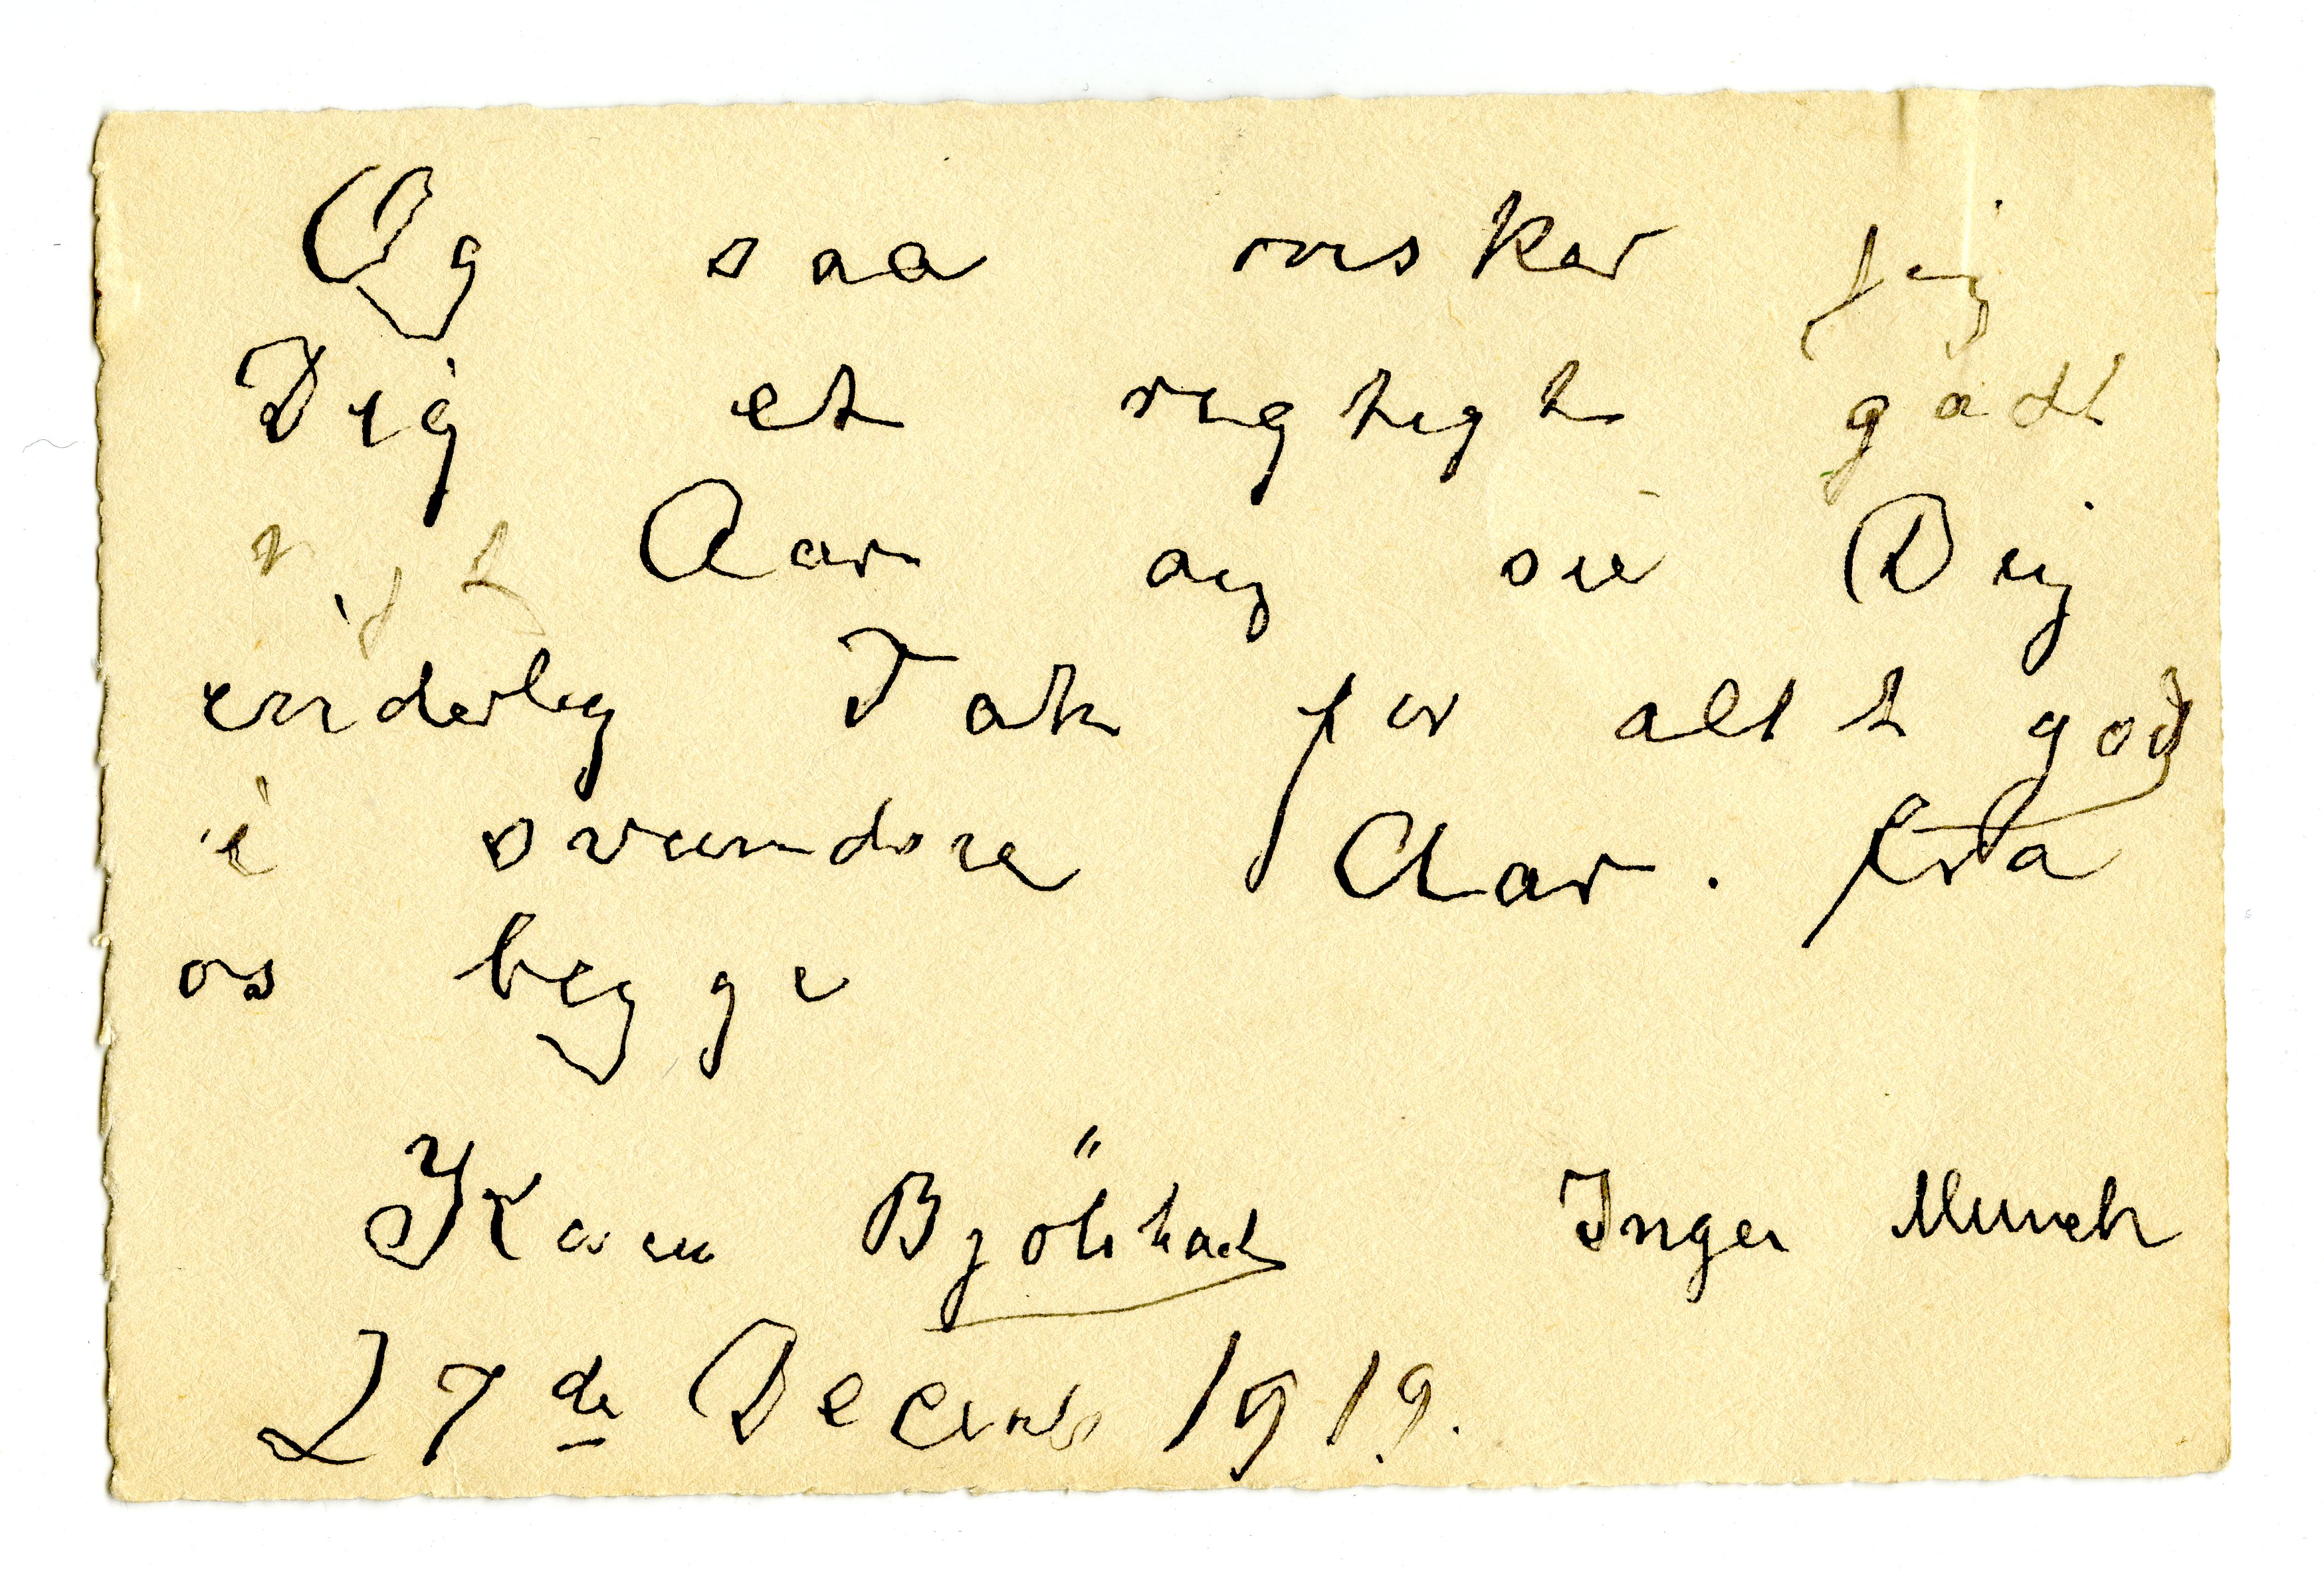 Og saa ønsker jeg
Dig et rigtigt godt
nyt Aar og sie Dig
inderlig Tak for alt godt
i svundne Aar. Fra
os begge
Karen Bjölstad Inger Munch
27de Decemb 1919.